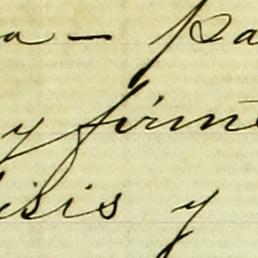 a - pa
y firme
isis y